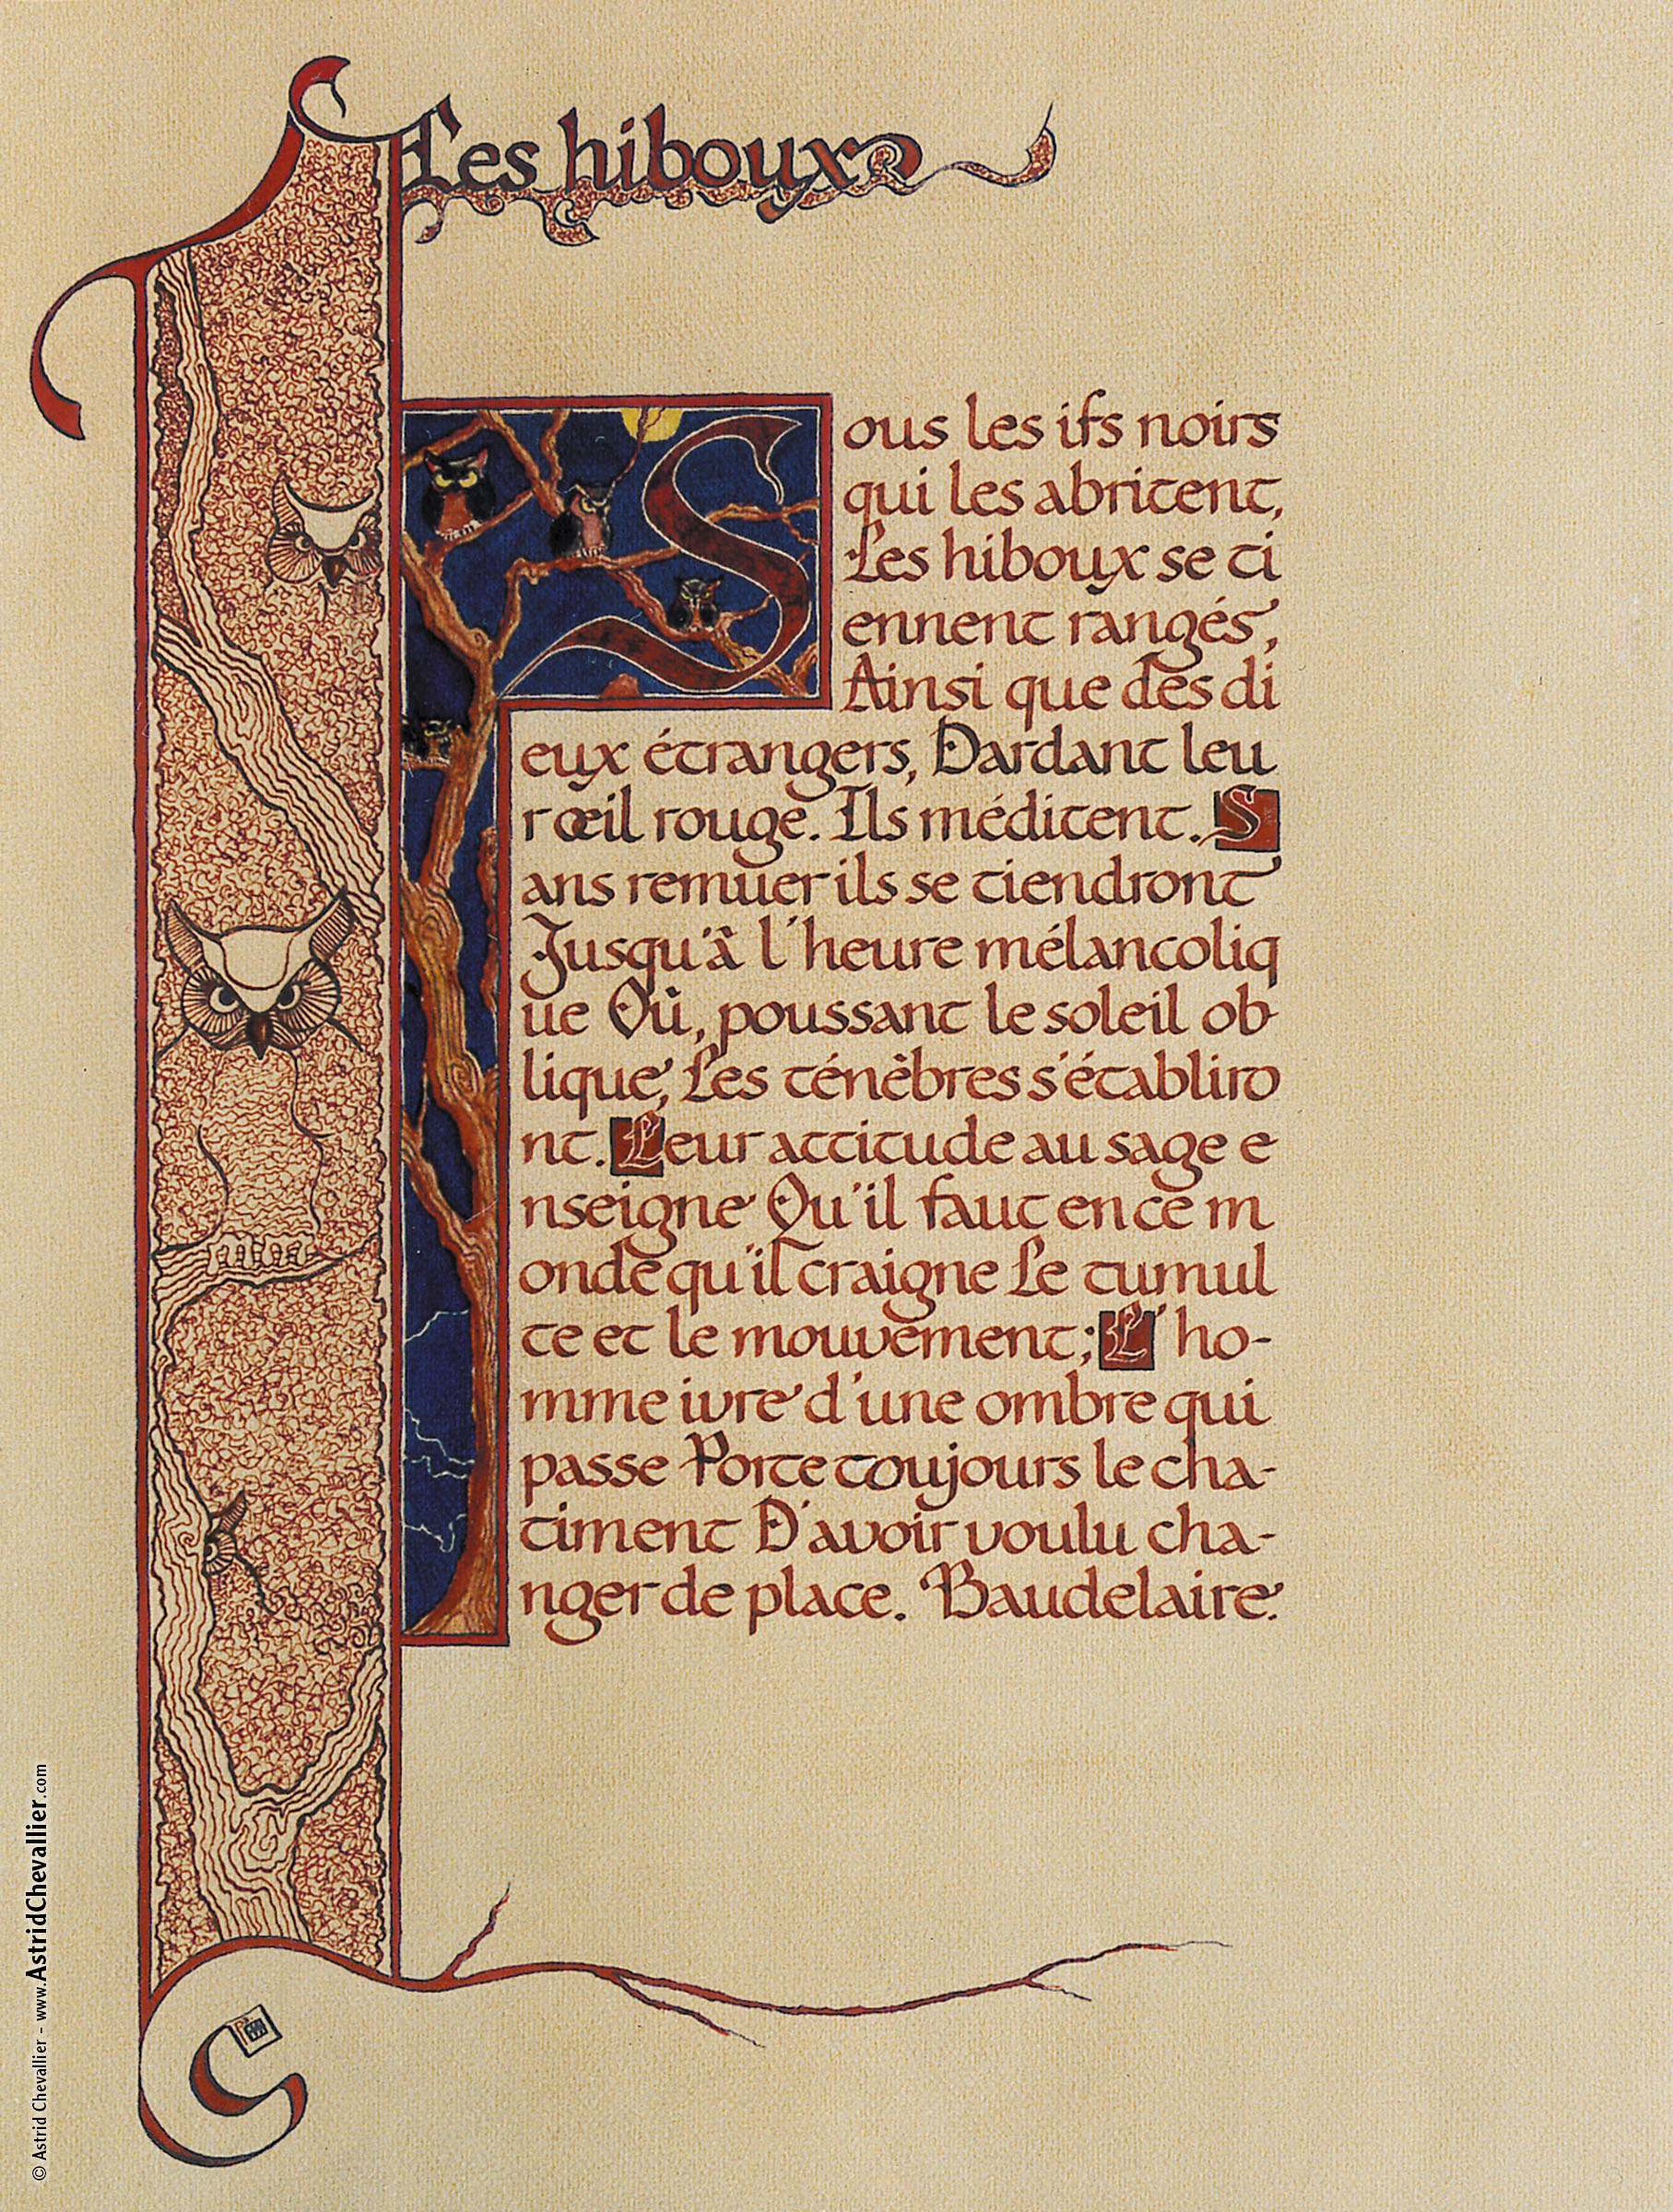 Les hiboux
Sous les ifs noirs
qui les abritent,
Les hiboux se ti
ennent rangés,
Ainsi que des di
eux étrangers, Dardant leu
r œil rouge. Ils méditent. S
ans remuer ils se tiendront
Jusqu'à l'heure mélancoliq
ue Où, poussant le soleil ob
lique, Les ténèbres s'établiro
nt. Leur attitude au sage e
nseigne Qu'il faut en ce m
onde qu'il craigne Le tumul
te et le mouvement; L'ho-
mme ivre d'une ombre qui
passe Porte toujours le cha-
timent D'avoir voulu cha-
nger de place. Baudelaire.
© Astrid Chevallier - www.AstridChevallier.com